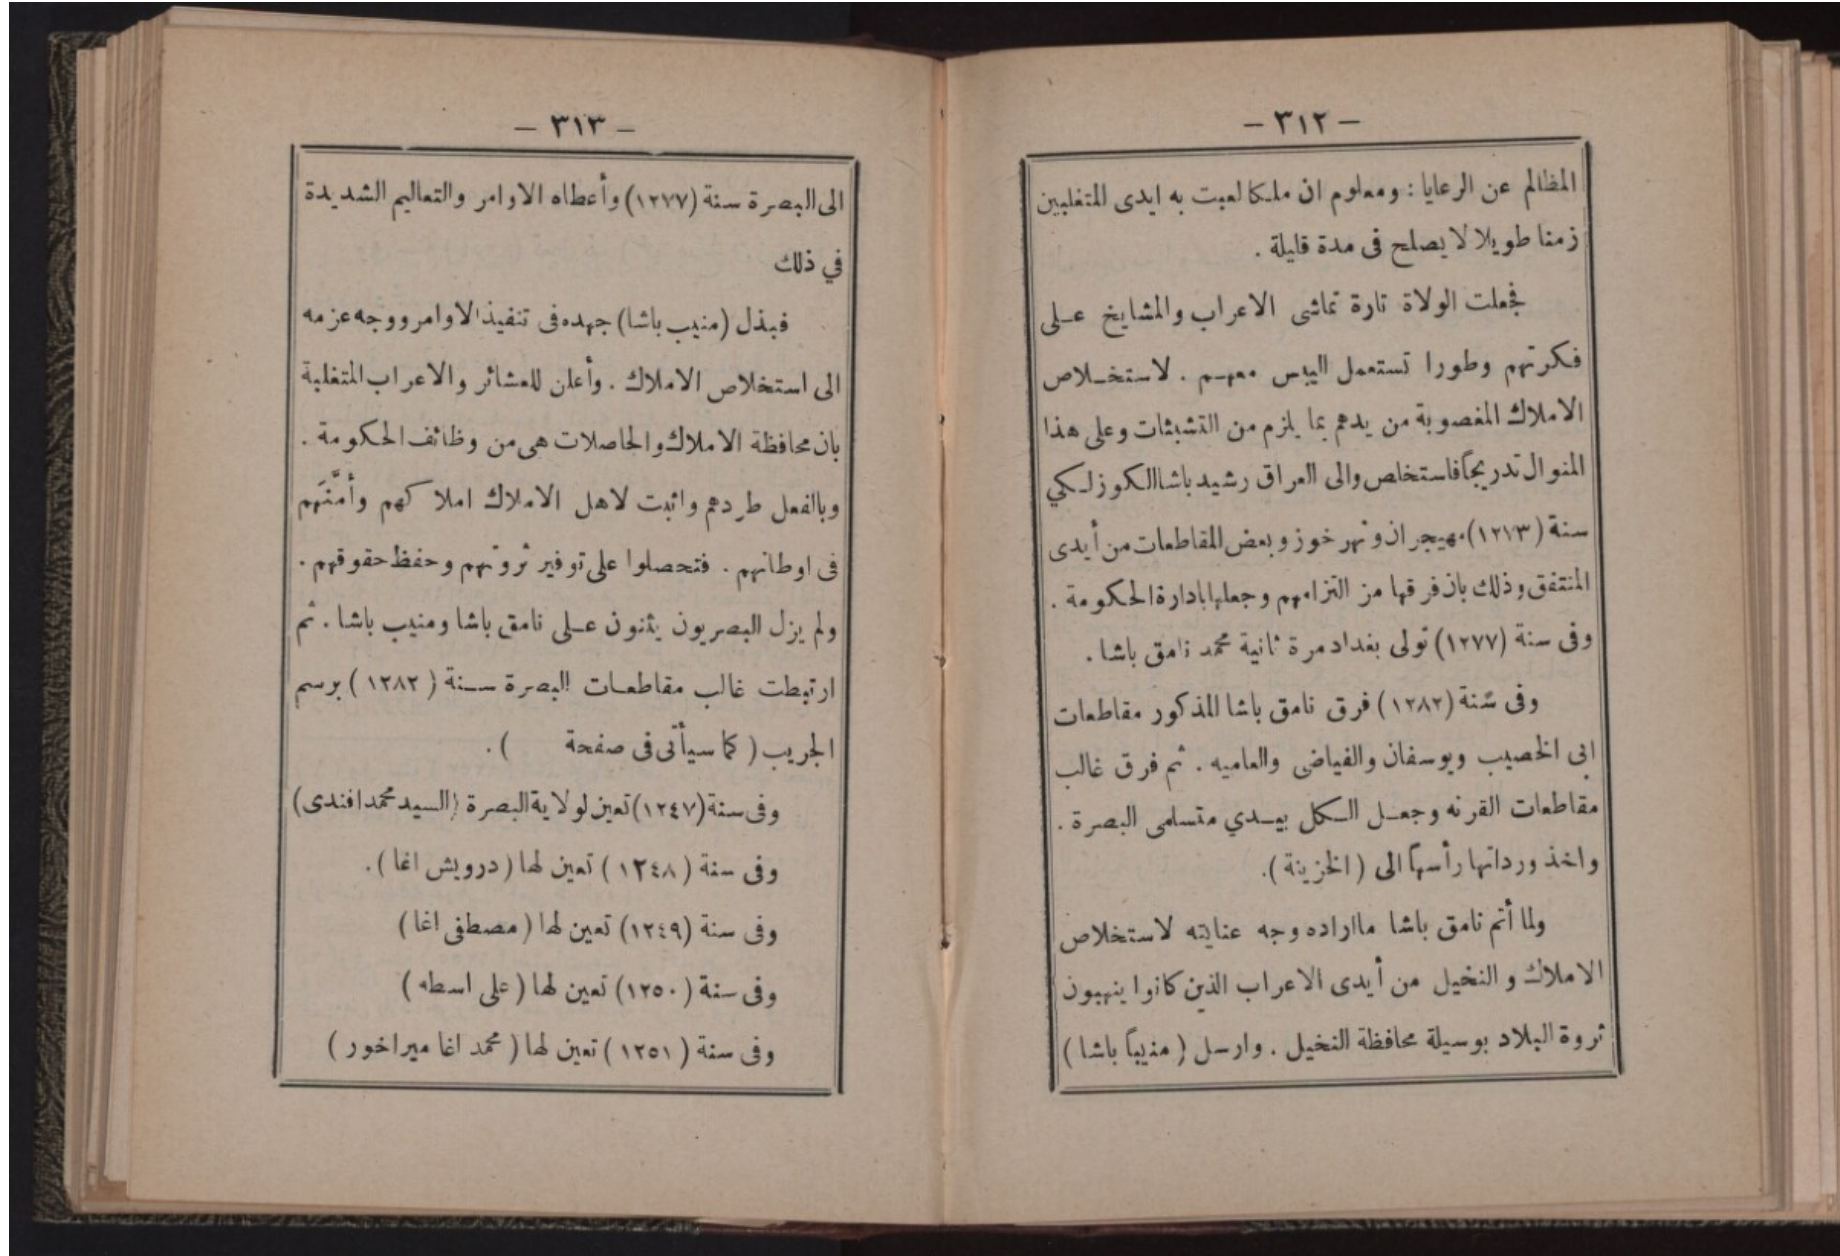 — ٣١٢ —
المظالم عن الرعايا : ومعلوم ان ملكا لعبت به ايدى المتغلبين
زمنا طويلا لا يصلح فى مدة قليلة .
فجعلت الولاة تارة تماشى الاعراب والمشايخ على
فكرتهم وطورا تستعمل اليبس معهم . لاستخلاص
الاملاك المغصوبة من يدهم بما يلزم من التشبثات وعلى هذا
المنوال تدريجاً فاستخلص والى العراق رشيد باشا الكوزلكي
سنة (١٢٧٣) مهيجران ونهر خوز وبعض المقاطعات من أيدى
المنتفق وذلك بان فرقها من التزامهم وجعلها بادارة الحكومة .
وفى سنة (١٢٧٧) تولى بغداد مرة ثانية محمد نامق باشا .
وفى سنة (١٢٨٢) فرق نامق باشا المذكور مقاطعات
ابى الخصيب ويوسفان والفياضى والعاميه . ثم فرق غالب
مقاطعات القرنه وجعل الكل بيدي متسلمى البصرة .
واخذ ورداتها رأسها الى (الخزينة) .
ولما أتم نامق باشا ما اراده وجه عنايته لاستخلاص
الاملاك و النخيل من أيدى الاعراب الذين كانوا ينهبون
ثروة البلاد بوسيلة محافظة النخيل . وارسل (منيباً باشا)
— ٣١٣ —
الى البصرة سنة (١٢٧٧) وأعطاه الاوامر والتعاليم الشديدة
في ذلك
فبذل (منيب باشا) جهده فى تنفيذ الاوامر ووجه عزمه
الى استخلاص الاملاك . وأعلن للعشائر والاعراب المتغلبة
بان محافظة الاملاك والحاصلات هى من وظائف الحكومة .
وبالفعل طردهم واثبت لاهل الاملاك املاكهم وأمَّنَهم
فى اوطانهم . فتحصلوا على توفير ثروتهم وحفظ حقوقهم .
ولم يزل البصريون يثنون على نامق باشا ومنيب باشا . ثم
ارتبطت غالب مقاطعات البصرة سنة (١٢٨٢) برسم
الجريب ( كما سيأتى فى صفحة ) .
وفى سنة (١٢٤٧) تعين لولاية البصرة (السيد محمد افندى)
وفى سنة (١٢٤٨) تعين لها (درويش اغا) .
وفى سنة (١٢٤٩) تعين لها (مصطفى اغا)
وفى سنة (١٢٥٠) تعين لها (على اسطه)
وفى سنة (١٢٥١) تعين لها (محمد اغا ميراخور)